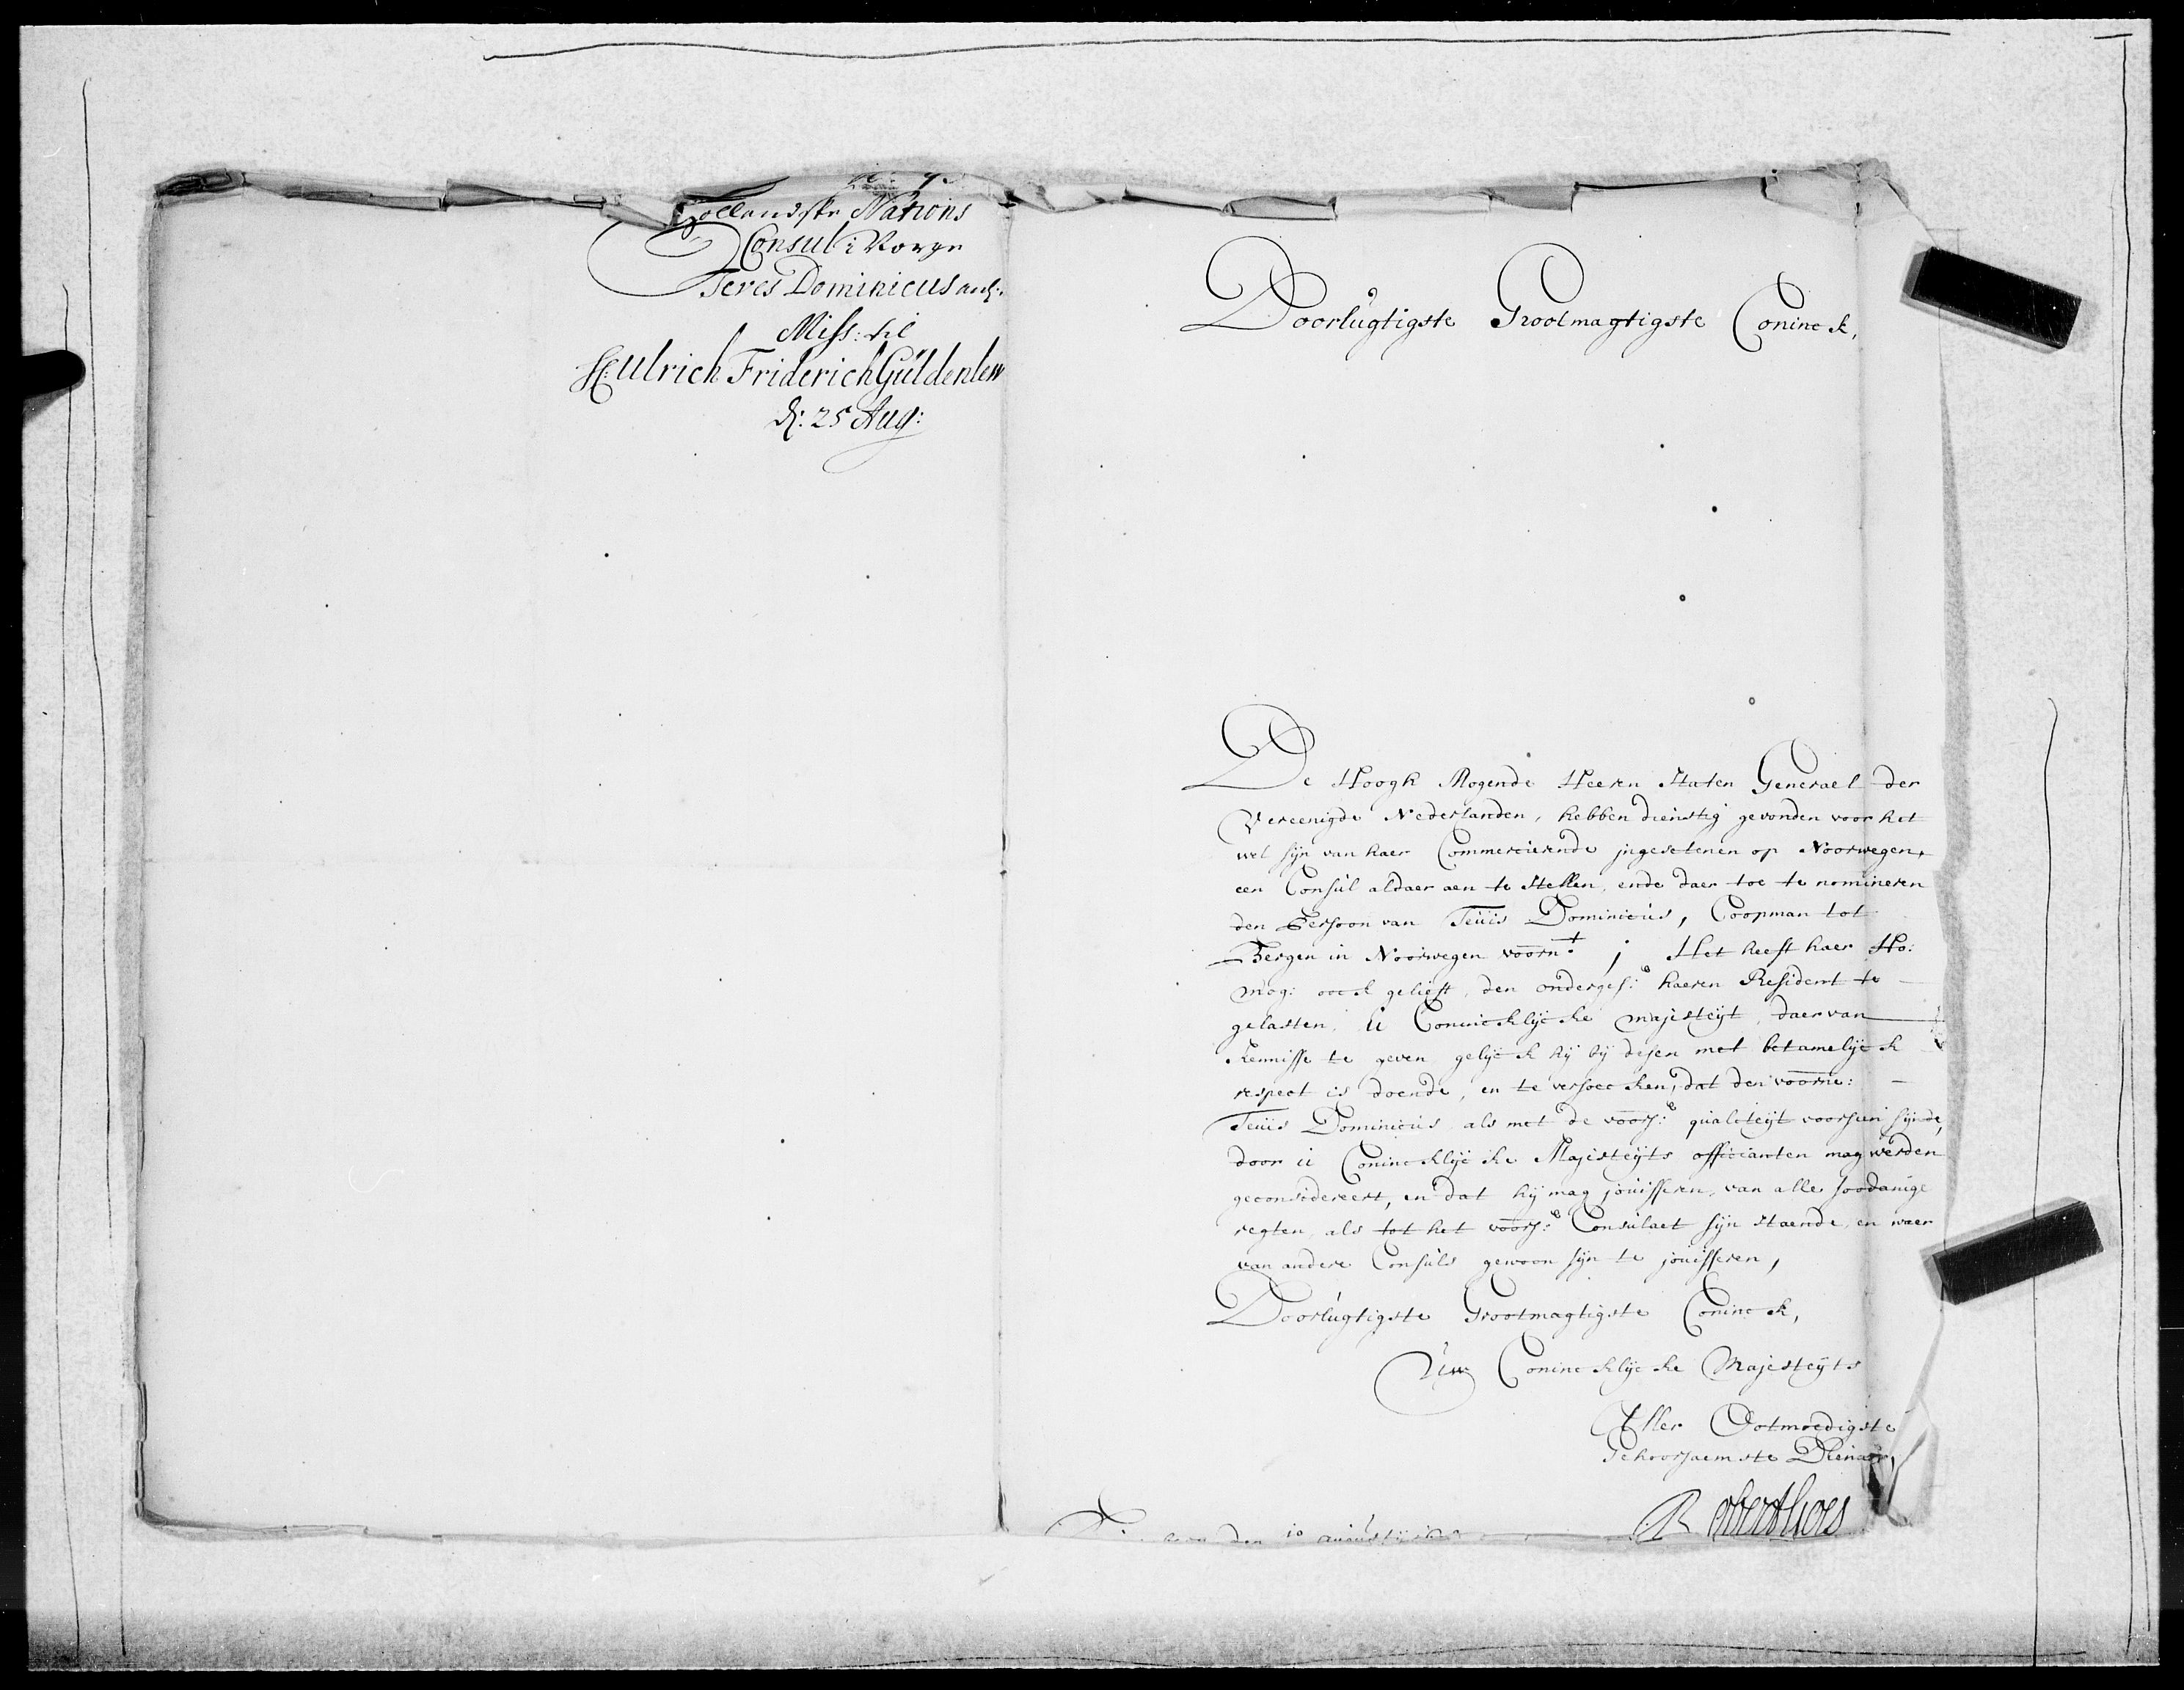 Hollandske Nations
Consul i Norge
Teves Dominicus anh:
Miss: til
H: Ulrich Friderich Güldenlew
d: 25 Aug:
Doorlúgtigste Grootmagtigste Coninck,
De Hoogh Mogende Heeren Staten Generael der
Vereenigde Nederlanden, hebben dienstig gevonden voor het
wel sijn van haer Commercierende jngesetenen op Noorwegen,
een Consúl aldaer aen te stellen, ende daer toe te nomineren
den Persoon van Teúis Dominicús, Coopman tot
Bergen in Noorwegen voorn:t; Het heeft haer Ho:
mog: oock gelieft, den onderges:e haeren Resident te
gelasten, ú Conincklijcke majesteijt, daer van
kennisse te geven gelijck hij bij desen met betamelijck
respect is doende, en te versoecken, dat den voorne:
Teúis Dominicús als met de voors:e qualiteijt voorsien sijnde,
door ú Conincklijcke Majesteijts officianten mag werden
geconsidereert, en dat hij mag joúisseren, van alle soodanige
regten, als tot het voors:e Consúlaet sijn staende, en waer
van andere Consúls gewoon sijn te joúisseren,
Doorlúgtigste Grootmagtigste Coninck,
Úw Conincklijcke Majesteijts
Aller Ootmoedigste
Gehoorsaemste Dienaer,
Robert Goes
den 10 aúgústij